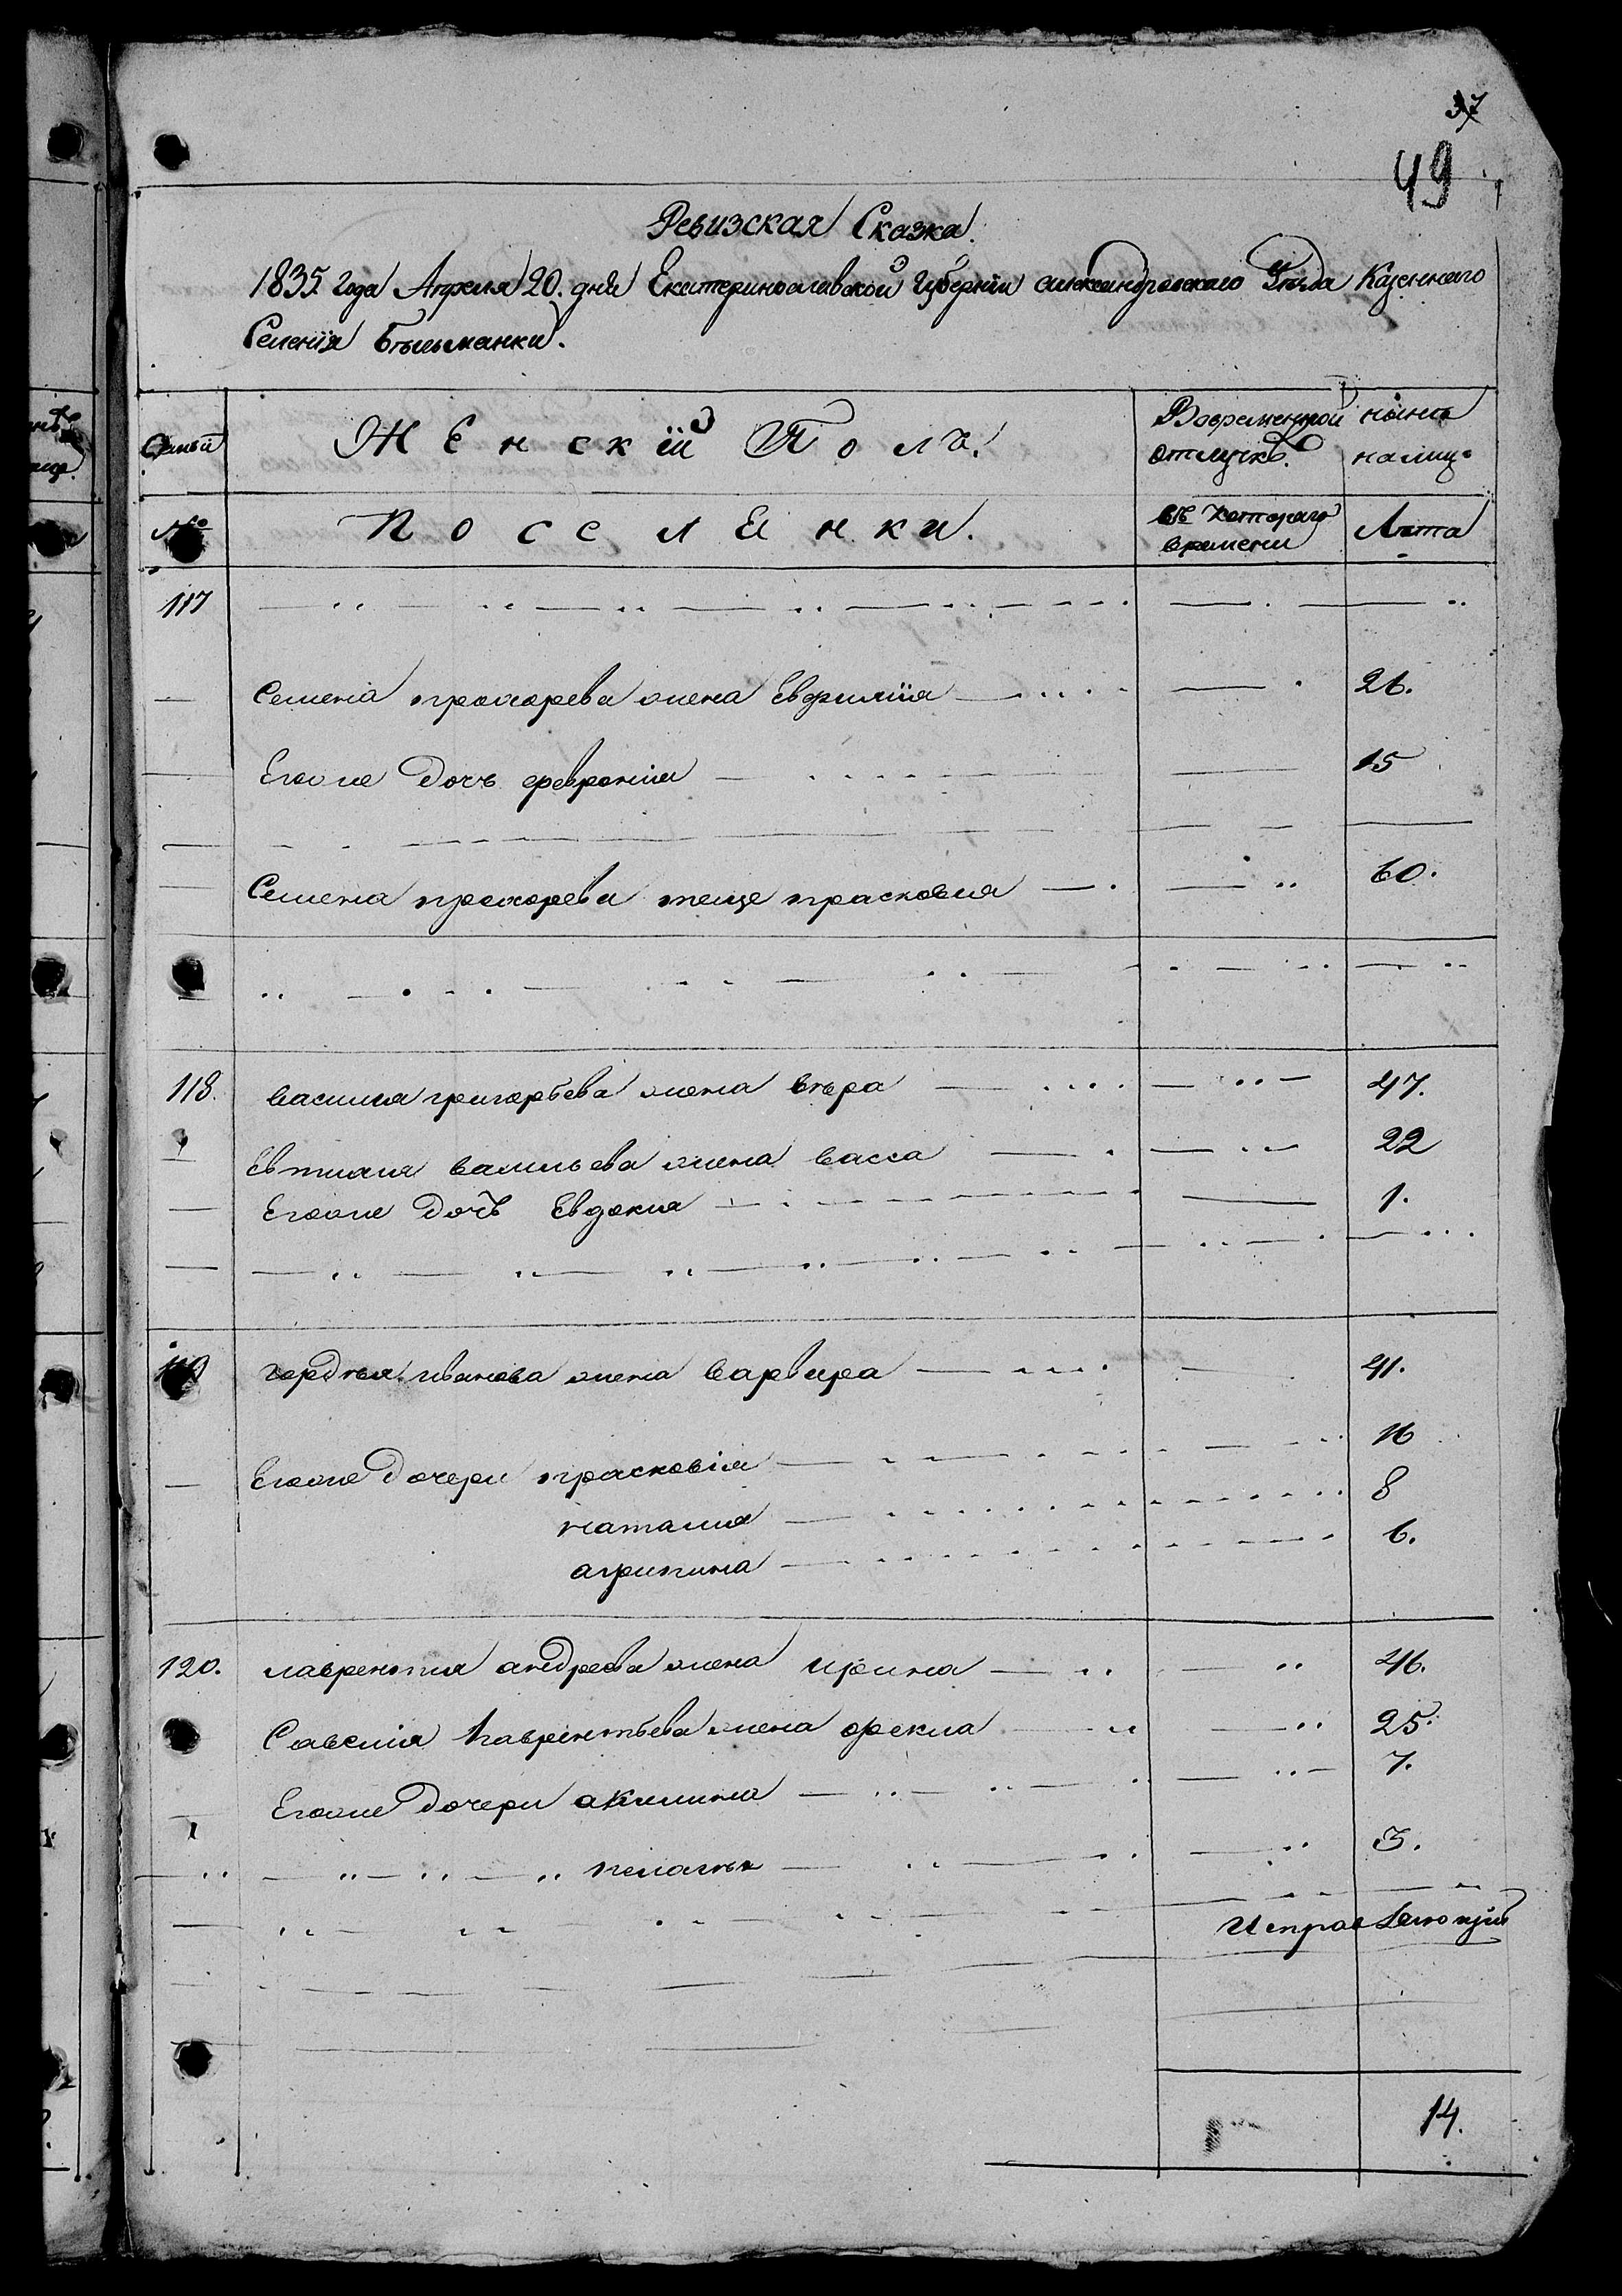 37
49
Ревизская Сказка.
1835 года Апреля 20. дня Екатеринославской Губернии александровскаго Уезда Казеннаго
Селенія Бѣльманки.
Семьи
Женскій Полъ.
Вовременной отлучкѣ.
нынѣ налиц=
№
Посселянки.
съ котораго времени
Лѣта
117
Семена прохорева жена Евфимія 26.
Егоже дочь февронія 15
Семена прохорева теще прасковия 60.
118. василия григорьева жена вѣра 47.
Евтихия васильева жена васса 22
Егоже дочь Евдокия 1.
119 гордѣя иванова жена варвара 41.
Егоже дочери прасковія 16
наталия 8
агрипина 6.
120. лаврентия андреева жена ирина 46.
Савелія Лаврентьева жена фекла 25.
Егоже дочери акилина 7.
пелагѣя 3.
14.